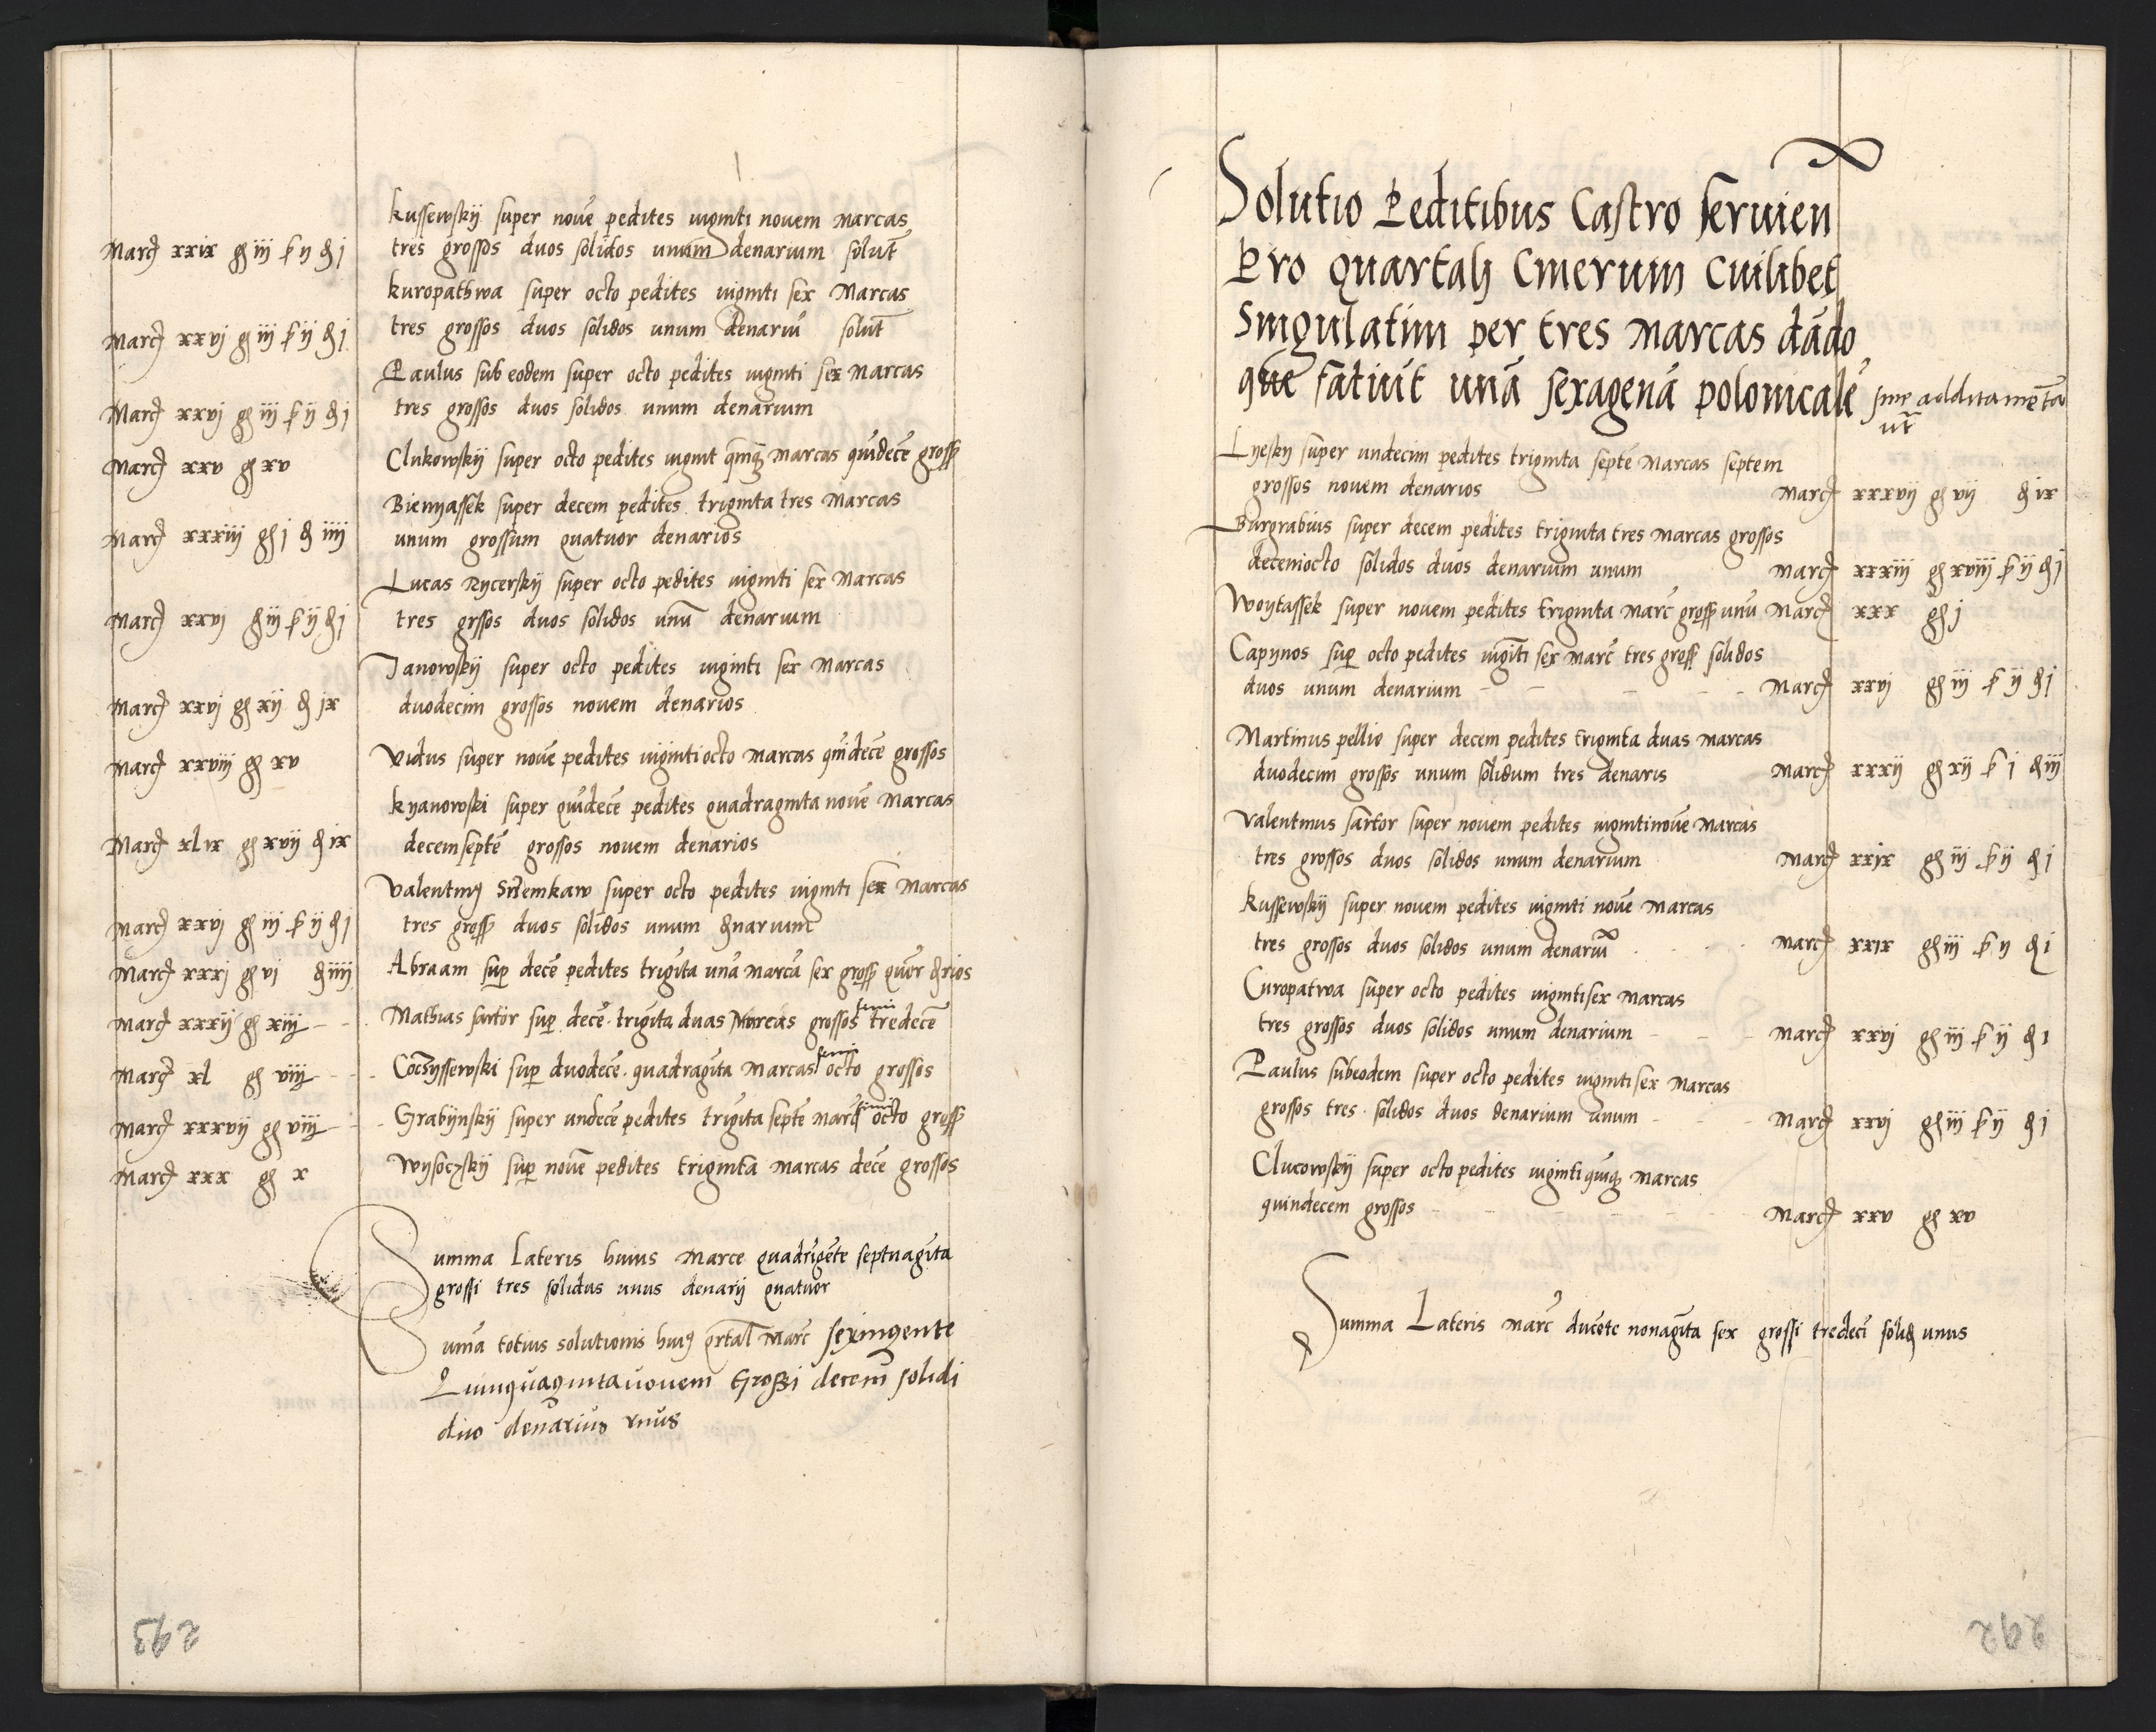 kussewskij super novē pedites viginti novem marcas
Marcę xxix gͦ iij ſ ij đ j tres grossos duos solidos unum denarium solut
kuropathwa super octo pedites viginti sex Marcas
Marcę xxvj gͦ iij ſ ij đ j tres grossos duos solidos unum denariū solut
Paulus sub eodem super octo pedites viginti sex Marcas
Marcę xxvj gͦ iij ſ ij đ j tres grossos duos solidos unum denarium
Marcę xxv gͦ xv Clukowskij super octo pedites vigint qinqȝ Marcas quīdecē gross
Bienyassek super decem pedites triginta tres Marcas
Marcę xxxiij gͦ j đ iiij unum grossum quatuor denarios
Lucas Rycerskij super octo pedites viginti sex Marcas
Marcę xxvj gͦ iij ſ ij đ j tres grssos duos solidos unū denarium
Janowskij super octo pedites viginti sex Marcas
Marcę xxvj gͦ xij đ jx duodecim grossos novem denarios
Marcę xxviij gͦ xv Vidus super novē pedites viginti octo Marcas quīdecē grossos
kyanowski super quīdecē pedites quadraginta novē Marcas
Marcę xlix gͦ xvij đ ix decemseptē grossos novem denarios
Valentinꝯ super octo pedites viginti sex Marcas
Marcę xxvj gͦ iij ſ ij đ j tres gross duos solidos unum đnarium
Marcę xxxj gͦ vj đ iiij Abraam suꝑ decē pedites trigīta unā marcā sex gross quꝰor đrios
Marcę xxxij gͦ xiij Mathias sartor suꝑ decē trigīta duas Marcas grossos semi tredecē
Marcę xl gͦ viij suꝑ duodecē quadragīta Marcas semi octo grossos
Marcę xxxvij gͦ viij Grabijnskij super undecē pedites trigīta septē marc semi octo gross
Marcę xxx gͦ x Wysoczskij suꝑ novē pedites triginta marcas decē grossos
Summa Lateris huius Marce quadrigēte septuagīta
grossi tres solidus unus denarij quatuor
Suma totius solutionis huiꝯ qrtal Marc sexingente
Quinquagintanovem Grossi decem solidi
duo denarius vnus
293
Solutio Peditibus Castro servien
Pro quartalj Cinerum Cuilibet
Singulatim per tres Marcas dādo
que faciūt unā sexagenā polonicalē sine additamēta
ut
Lyesky super undecim pedites triginta septē Marcas septem
grossos novem denarios Marcę xxxvij gͦ vij đ ix
Burgrabius super decem pedites triginta tres Marcas grossos
decemocto solidos duos denarium unum Marcę xxxiij gͦ xviij ſ ij đ j
Woytassek super novem pedites triginta Marc gross unū Marcę xxx gͦ j
Capynos suꝑ octo pedites vigīti sex Marc tres gross solidos
duos unum denarium Marcę xxvj gͦ iij ſ ij đ j
Martinus pellio super decem pedites triginta duas Marcas
duodecim grossos unum solidum tres denaris Marcę xxxij gͦ xij ſ j đ iij
Valentinus sartor super novem pedites vigintinovē Marcas
tres grossos duos solidos unum denarium Marcę xxjx gͦ iij ſ ij đ j
kussewskij super novem pedites viginti novē Marcas
tres grossos duos solidos unum denariū Marcę xxix gͦ iij ſ ij đ j
Curopatwa super octo pedites vigintisex Marcas
tres grossos duos solidos unum denarium Marcę xxvj gͦ iij ſ ij đ i
Paulus subeodem super octo pedites vigintisex Marcas
grossos tres solidos duos denarium unum Marcę xxvj gͦ iij ſ ij đ j
Clucowskij super octo pedites viginti quīqȝ Marcas
quindecem grossos Marcę xxv gͦ xv
Summa Lateris Marc ducēte nonagīta sex grossi tredecī solidꝯ unus
292